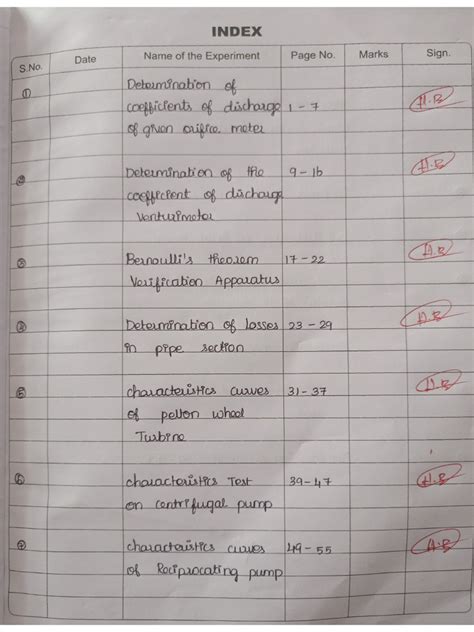 INDEX
S.No. Date Name of the Experiment Page No. Marks Sign.
① Determination of
coefficients of discharge 1-7 A.B
of given orifice meter
② Determination of the 9-16 A.B
coefficient of discharge
Venturimeter
③ Bernoulli's theorem 17-22 A.B
Verification Apparatus
④ Determination of losses 23-29 A.B
in pipe section
⑤ characteristics curves 31-37 A.B
of pelton wheel
Turbine
⑥ characteristics Test 39-47 A.B
on centrifugal pump
⑦ characteristics curves 49-55 A.B
of Reciprocating pump